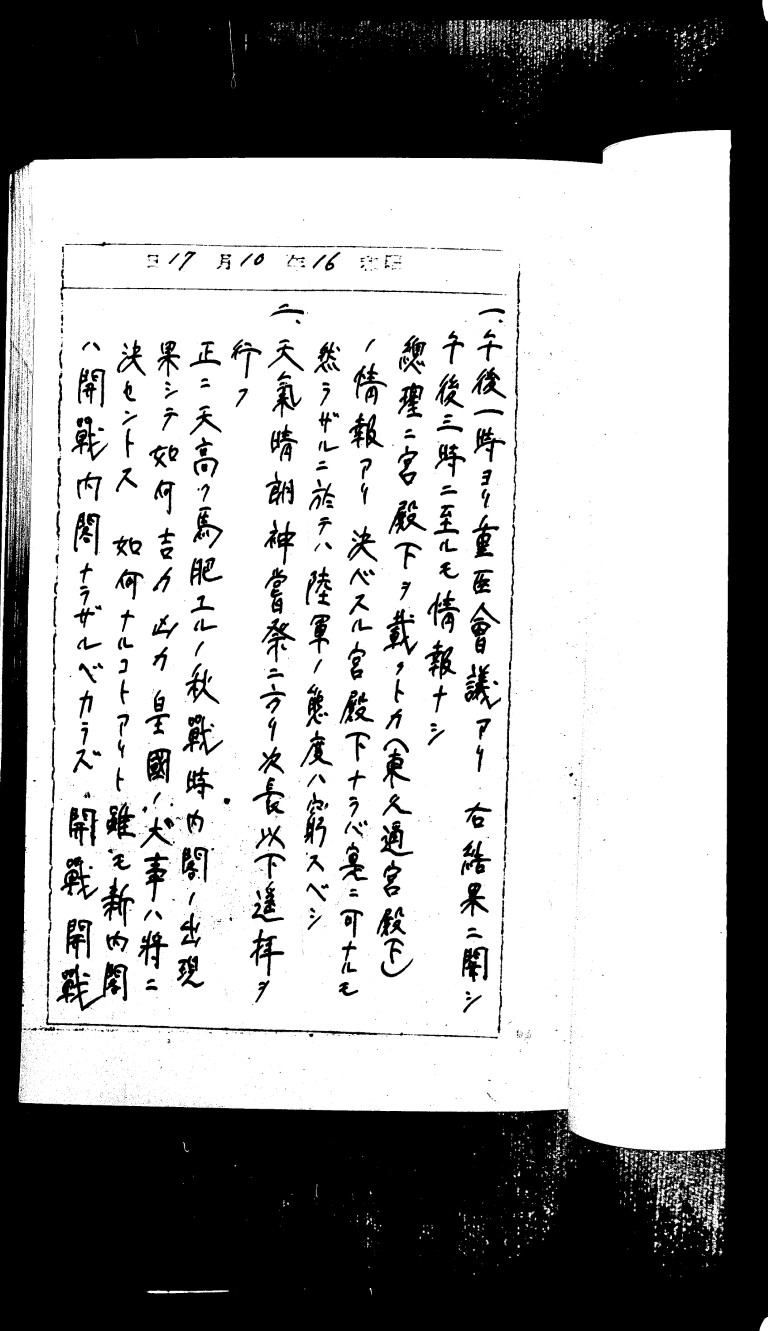 昭和16年10月17日
一、午後一時ヨリ重臣會議アリ 右結果ニ関シ
午後三時ニ至ルモ情報ナシ
總理ニ宮殿下ヲ載クトカ(東久邇宮殿下)
ノ情報アリ 決ベスル宮殿下ナラバ寔ニ可ナルモ
然ラザルニ於テハ陸軍ノ態度ハ窮スベシ
二、天氣晴朗神嘗祭ニ方リ次長以下遥拝ヲ
行フ
正ニ天高ク馬肥エルノ秋戰時内閣ノ出現
果シテ如何吉カ凶カ皇國ノ大事ハ将ニ
決セントス 如何ナルコトアリト雖モ新内閣
ハ開戰内閣ナラザルベカラズ 開戰開戰